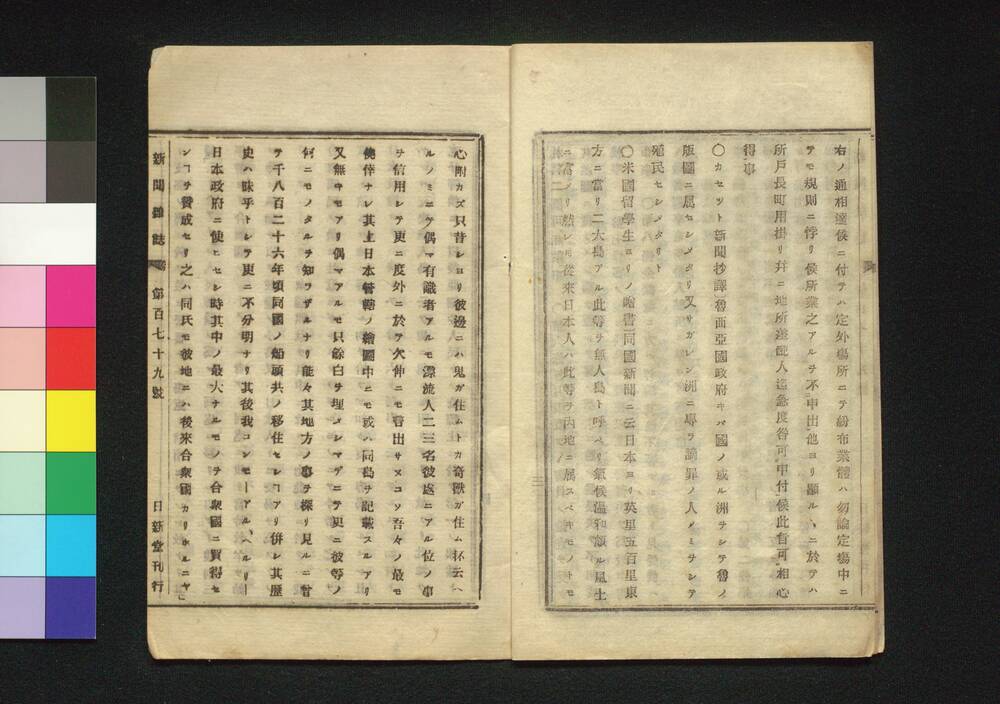 右ノ通相達候ニ付テハ定外場所ニテ紛布業體ハ勿論定場中ニ
テモ規則ニ悖リ候所業之アルヲ不申出他ヨリ顯ルヽニ於テハ
所戸長町用掛リ幷ニ地所差配人迄急度咎可申付候此旨可相心
得事
〇カセット新聞抄譯魯西亞國政府キバ國ノ或ル洲ヲシテ魯ノ
版圖ニ属セシメタリ又サガレン洲ニ專ラ謫罪ノ人ノミヲシテ
殖民セシメタリト
〇米國留學生ヨリノ喩書同國新聞ニ云日本ヨリ英里五百里東
方ニ當リ二大島アル此等ヲ無人島ト呼ベリ氣候温和頗ル風土
ニ富メリ然レモ從來日本人ハ此等ヲ内地ニ属スベキモノトモ
心附カズ只昔シヨリ彼邊ニハ鬼ガ住ムトカ奇獸ガ住ム杯云ヘ
ルノミニテ偶マ有識者アルモ漂流人二三名彼處ニアル位ノ事
ヲ信用シテ更ニ度外ニ於テ欠伸ニモ言出サスコソ吾々ノ最モ
僥倖ナレ其上日本管轄ノ繪圖中ニモ或ハ同島ヲ記載スルアリ
又無キモアリ偶マアルモ只餘白ヲ埋メシマデニテ更ニ彼等ノ
何ニモノタルヲ知ラザルナリ能々其地方ノ事ヲ探リ見ルニ曾
テ千八百二十六年頃同國ノ船頭共ノ移住セシヿアリ併シ其歴
史ハ昧乎トシテ更ニ不分明ナリ其後我コンモードアルヘルリー
日本政府ニ使ヒセシ時其中ノ最大ナルモノヲ合衆國ニ買得セ
ンヿヲ賛成セリ之ハ同氏モ彼地ニハ後來合衆國
新聞雜誌 第百七十九號 日新堂刊行